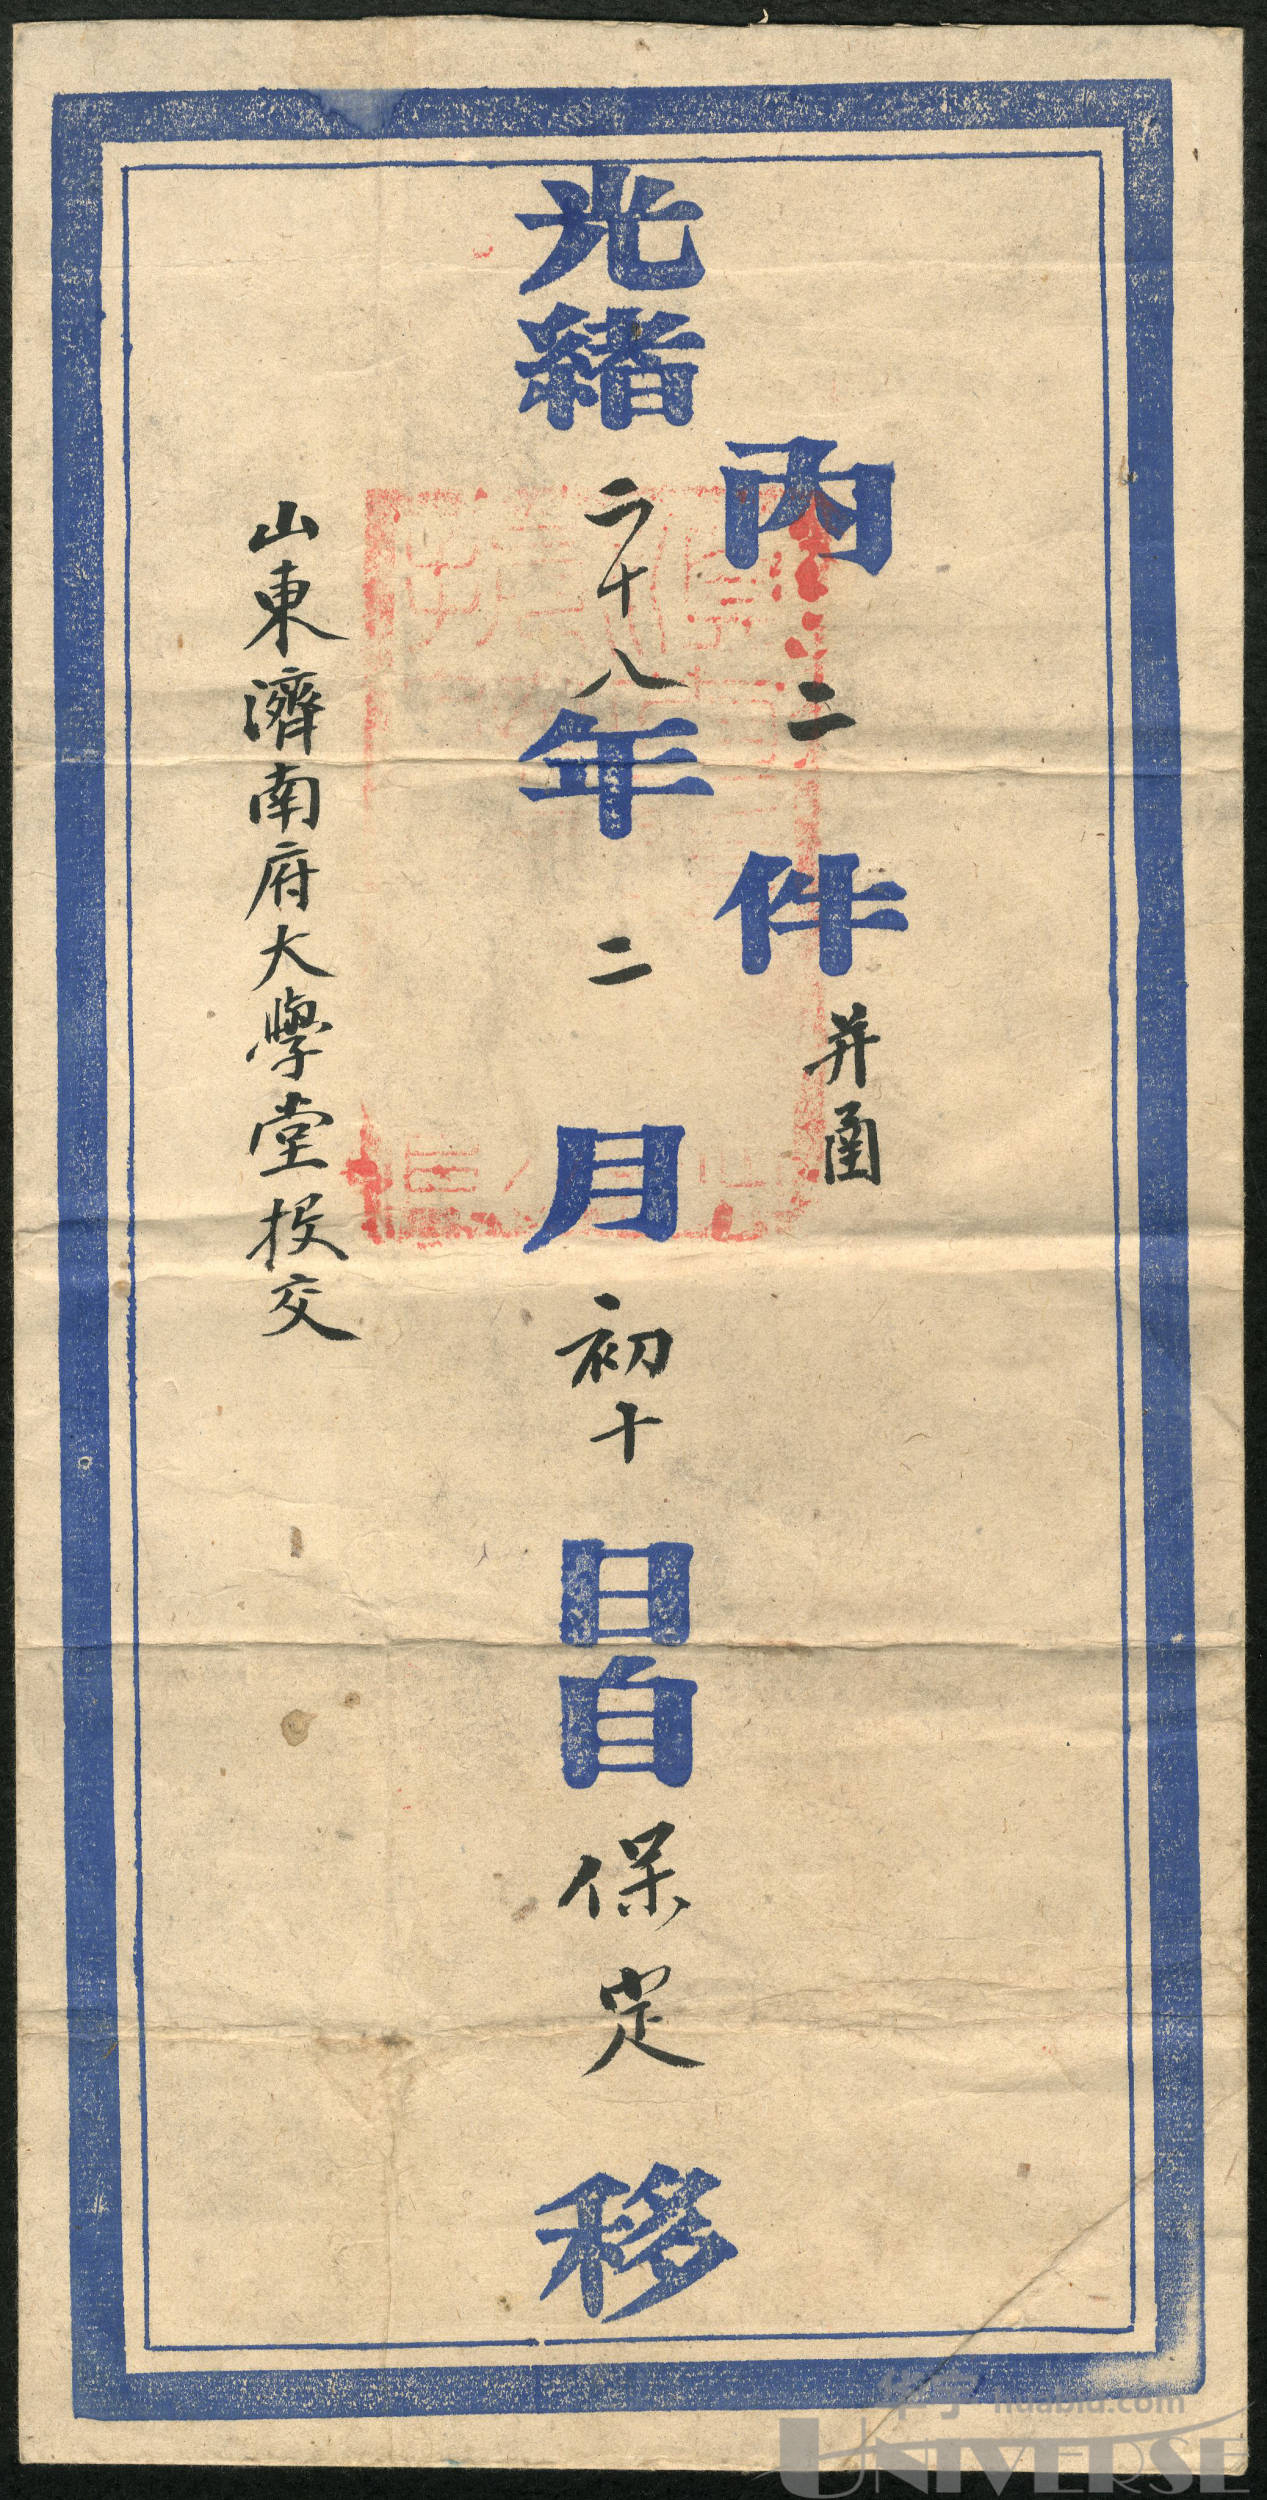 內二件并圅
光緒二十八年二月初十日自保定移
山東濟南府大學堂投交
huabid.com
UNIVERSE